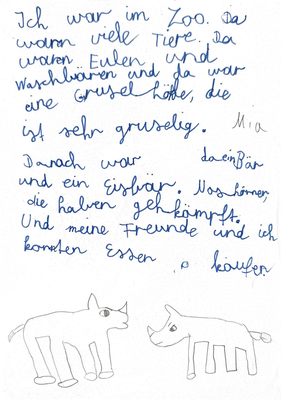 Ich war im Zoo. Da
waren viele Tiere. Da
waren Eulen und
Waschbären und da war
eine Grusel höhle, die
ist sehr gruselig. Mia
Danach war da ein Bär
und ein Eisbär. Nashörner,
die haben gekämpft.
Und meine Freunde und ich
konnten Essen kaufen